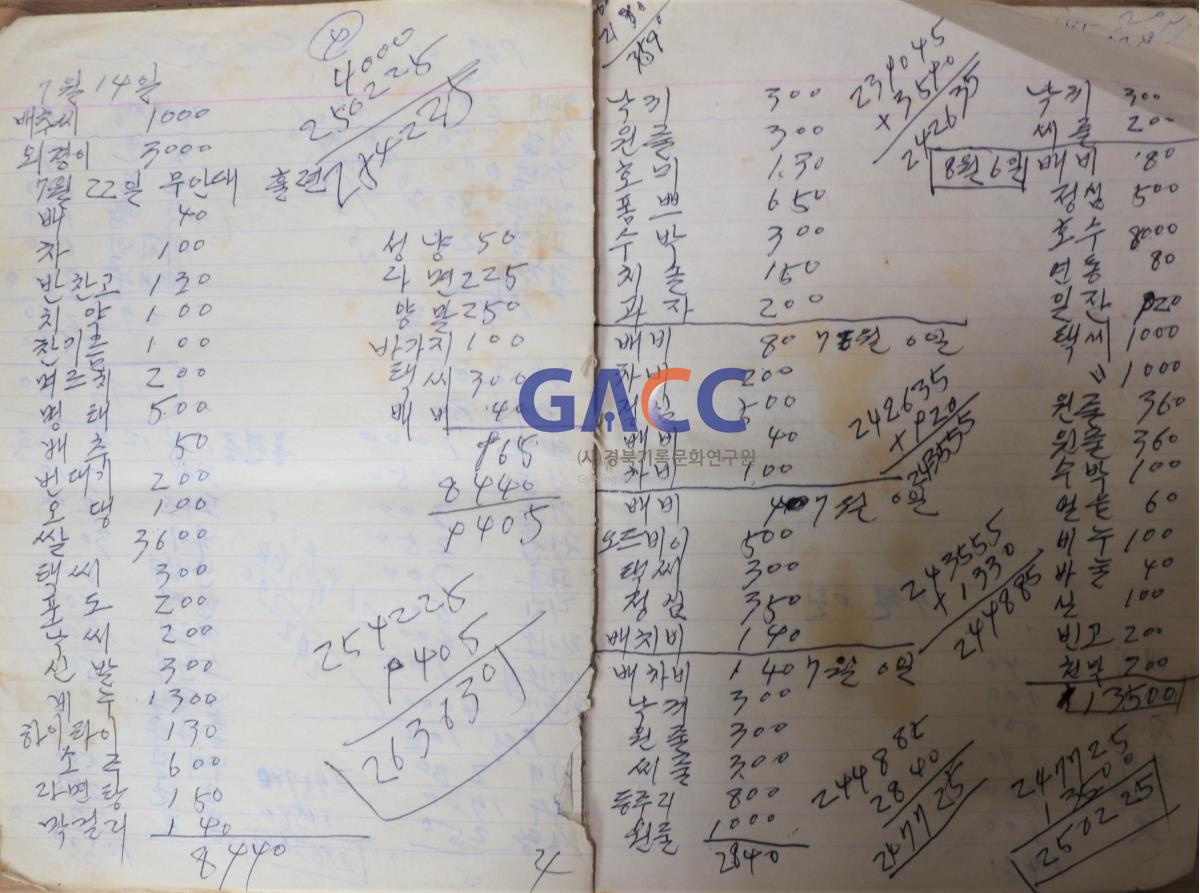 4
4000
250225
254225
7월 14일
배추씨 1000
외경이 3000
7월 22일 무안대 훌련
배 40
차 100
반찬고 130
치약 100
찬기름 100
며르치 200
명태 500
배추 50
번대기 200
오뎅 100
쌀 3600
택씨 300
포도 200
낙씨 200
신발 300
게누 1300
하이타이 130
소주 600
라면땅 150
막걸리 140
8440
성냥 50
라면 225
양말 250
바가지 100
택씨 300
배비 40
965
8440
9405
254225
9405
263630
낙끼 300
원줄 300
호미 130
폼쁘 650
수박 300
치솔 150
과자 200
배비 80 7월 0일
차비 200
점심
배비 40
차비 100
배비 40 7월 0일
오드비이 500
택씨 300
정심 350
배치비 140
배차비 140 7월 0일
낙껴 300
원줄 300
씨줄 300
등주리 800
원줄 1000
2840
239045
× 3590
242635
242635
× 920
243555
243555
× 1330
244885
244885
2840
247725
낙끼 300
씨줄 200
8월 6일 배비 80
정심 500
호수 8000
연통 80
일잔 920
택씨 1000
〃 1000
원줄 360
원줄 360
수박 100
얼음 60
비누 100
바늘 40
실 100
빈고 200
천막 200
13500
247725
13500
250225
GACC
(사)경북기록문화연구원